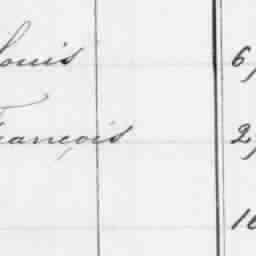 Louis 6
François 2